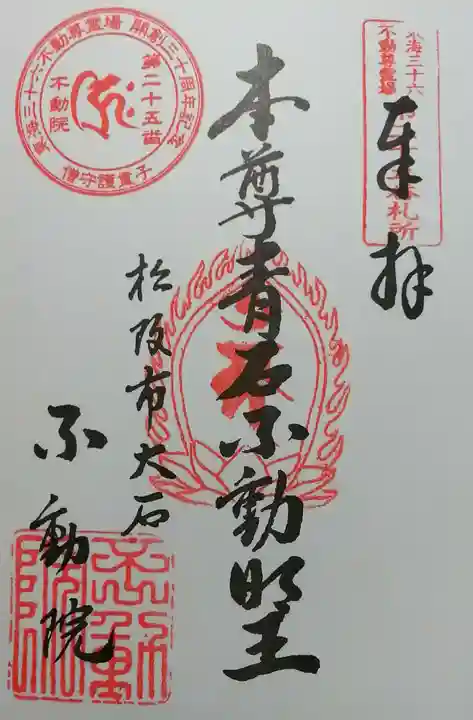 東海三十六
不動尊霊場
第二十五番札所
奉拝
本尊青石不動明王
東海三十六不動尊霊場 開創三十周年記念
第二十五番
不動院
僧守護童子
松阪市大石
不動院
不動院